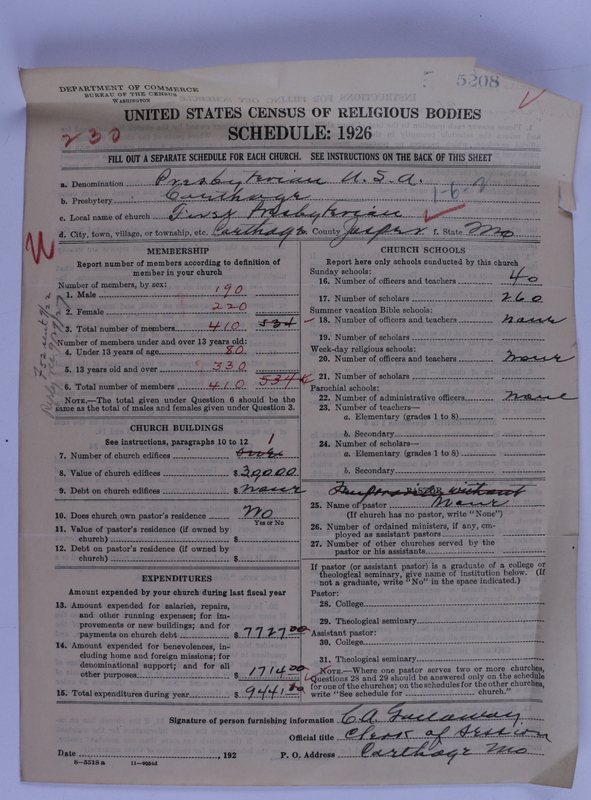 5208
DEPARTMENT OF COMMERCE
BUREAU OF THE CENSUS
WASHINGTON
230
UNITED STATES CENSUS OF RELIGIOUS BODIES
SCHEDULE: 1926
FILL OUT A SEPARATE SCHEDULE FOR EACH CHURCH. SEE INSTRUCTIONS ON THE BACK OF THIS SHEET
a. Denomination Presbyterian U.S.A.
b. Presbytery Carthage
c. Local name of church First Presbyterian
d. City, town, village, or township, etc. Carthage County Jasper f. State Mo
MEMBERSHIP
Report number of members according to definition of
member in your church
Number of members, by sex:
1. Male 190
2. Female 220
3. Total number of members 410 534
Number of members under and over 13 years old:
4. Under 13 years of age 80
5. 13 years old and over 330
6. Total number of members 410 534
NOTE.—The total given under Question 6 should be the
same as the total of males and females given under Question 3.
CHURCH BUILDINGS
See instructions, paragraphs 10 to 12
7. Number of church edifices 1
8. Value of church edifices $30,000
9. Debt on church edifices $ none
10. Does church own pastor's residence No
Yes or No
11. Value of pastor's residence (if owned by
church) $
12. Debt on pastor's residence (if owned by
church) $
EXPENDITURES
Amount expended by your church during last fiscal year
13. Amount expended for salaries, repairs,
and other running expenses; for im-
provements or new buildings; and for
payments on church debt $7727.00
14. Amount expended for benevolences, in-
cluding home and foreign missions; for
denominational support; and for all
other purposes $1714.00
15. Total expenditures during year $9441.00
CHURCH SCHOOLS
Report here only schools conducted by this church
Sunday schools:
16. Number of officers and teachers 40
17. Number of scholars 260
Summer vacation Bible schools:
18. Number of officers and teachers none
19. Number of scholars
Week-day religious schools:
20. Number of officers and teachers none
21. Number of scholars
Parochial schools:
22. Number of administrative officers none
23. Number of teachers—
a. Elementary (grades 1 to 8)
b. Secondary
24. Number of scholars—
a. Elementary (grades 1 to 8)
b. Secondary
Temporarily without
PASTOR
25. Name of pastor None
(If church has no pastor, write "None")
26. Number of ordained ministers, if any, em-
ployed as assistant pastors
27. Number of other churches served by the
pastor or his assistants
If pastor (or assistant pastor) is a graduate of a college or
theological seminary, give name of institution below. (If
not a graduate, write "No" in the space indicated.)
Pastor:
28. College
29. Theological seminary
Assistant pastor:
30. College
31. Theological seminary
NOTE.—Where one pastor serves two or more churches,
Questions 28 and 29 should be answered only on the schedule
for one of the churches; on the schedules for the other churches,
write "See schedule for church."
Signature of person furnishing information C.A. Gallaway
Official title Clerk of Session
Date , 192 P. O. Address Carthage Mo
8—5518 a